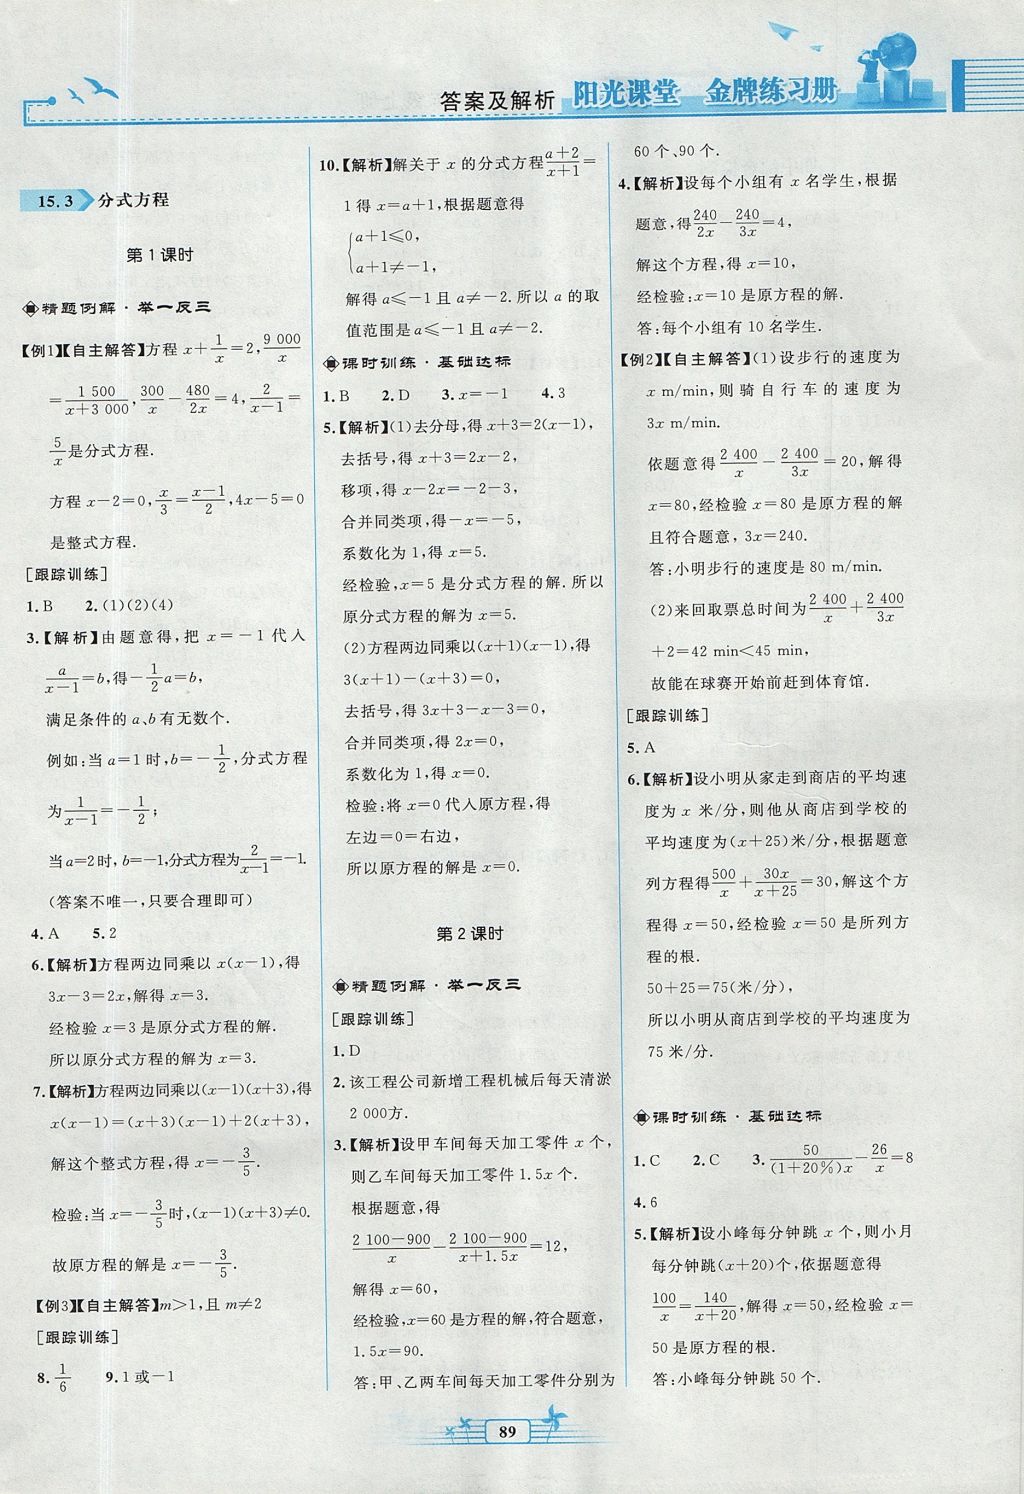 答案及解析 阳光课堂 金牌练习册
15.3 分式方程
第1课时
精题例解·举一反三
【例1】【自主解答】方程 x+1/x=2, 9 000/x
=1 500/(x+3 000), 300/x-480/2x=4, 2/(x-1)=
5/x是分式方程.
方程 x-2=0, x/3=(x-1)/2, 4x-5=0
是整式方程.
[跟踪训练]
1.B 2.(1)(2)(4)
3.【解析】由题意得,把 x=-1 代入
a/(x-1)=b,得-1/2a=b,
满足条件的 a、b 有无数个.
例如:当 a=1 时,b=-1/2,分式方程
为1/(x-1)=-1/2;
当a=2时,b=-1,分式方程为2/(x-1)=-1.
(答案不唯一,只要合理即可)
4.A 5.2
6.【解析】方程两边同乘以 x(x-1),得
3x-3=2x,解得 x=3.
经检验 x=3 是原分式方程的解.
所以原分式方程的解为 x=3.
7.【解析】方程两边同乘以(x-1)(x+3),得
x(x-1)=(x+3)(x-1)+2(x+3),
解这个整式方程,得 x=-3/5.
检验:当 x=-3/5时,(x-1)(x+3)≠0.
故原方程的解是 x=-3/5.
【例3】【自主解答】m>1,且 m≠2
[跟踪训练]
8.1/6 9.1 或-1
10.【解析】解关于 x 的分式方程(a+2)/(x+1)=
1得 x=a+1,根据题意得
{a+1≤0,
a+1≠-1,
解得 a≤-1 且 a≠-2.所以 a 的取
值范围是 a≤-1 且 a≠-2.
课时训练·基础达标
1.B 2.D 3.x=-1 4.3
5.【解析】(1)去分母,得 x+3=2(x-1),
去括号,得 x+3=2x-2,
移项,得 x-2x=-2-3,
合并同类项,得-x=-5,
系数化为 1,得 x=5.
经检验,x=5 是分式方程的解.所以
原分式方程的解为 x=5.
(2)方程两边同乘以(x+1)(x-1),得
3(x+1)-(x+3)=0,
去括号,得 3x+3-x-3=0,
合并同类项,得 2x=0,
系数化为 1,得 x=0.
检验:将 x=0 代入原方程,得
左边=0=右边,
所以原方程的解是 x=0.
第2课时
精题例解·举一反三
[跟踪训练]
1.D
2.该工程公司新增工程机械后每天清淤
2 000方.
3.【解析】设甲车间每天加工零件 x 个,
则乙车间每天加工零件 1.5x 个.
根据题意,得
(2 100-900)/x-(2 100-900)/(x+1.5x)=12,
解得 x=60,
经检验,x=60 是方程的解,符合题意,
1.5x=90.
答:甲、乙两车间每天加工零件分别为
60 个、90 个.
4.【解析】设每个小组有 x 名学生,根据
题意,得240/2x-240/3x=4,
解这个方程,得 x=10,
经检验:x=10 是原方程的解.
答:每个小组有 10 名学生.
【例2】【自主解答】(1)设步行的速度为
x m/min,则骑自行车的速度为
3x m/min.
依题意得2 400/x-2 400/3x=20,解得
x=80,经检验 x=80 是原方程的解
且符合题意,3x=240.
答:小明步行的速度是 80 m/min.
(2)来回取票总时间为2 400/x+2 400/3x
+2=42 min<45 min,
故能在球赛开始前赶到体育馆.
[跟踪训练]
5.A
6.【解析】设小明从家走到商店的平均速
度为 x 米/分,则他从商店到学校的
平均速度为(x+25)米/分,根据题意
列方程得500/x+30x/(x+25)=30,解这个方
程得 x=50,经检验 x=50 是所列方
程的根.
50+25=75(米/分),
所以小明从商店到学校的平均速度为
75 米/分.
课时训练·基础达标
1.C 2.C 3.50/((1+20%)x)-26/x=8
4.6
5.【解析】设小峰每分钟跳 x 个,则小月
每分钟跳(x+20)个,依据题意得
100/x=140/(x+20),解得 x=50,经检验 x=
50 是原方程的根.
答:小峰每分钟跳 50 个.
89